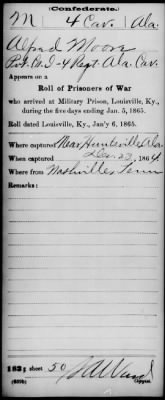 (Confederate.)
M 4 Cav. Ala.
Alfred Moon
Pvt. Co. D - 4 Regt. Ala. Cav.
Appears on a
Roll of Prisoners of War
who arrived at Military Prison, Louisville, Ky.,
during the five days ending Jan. 5, 1865.
Roll dated Louisville, Ky., Jan'y 6, 1865.
Where captured Near Huntsville Ala.
When captured Dec. 23, 1864
Where from Nashville Tenn
Remarks:
sheet 50
Copyist.